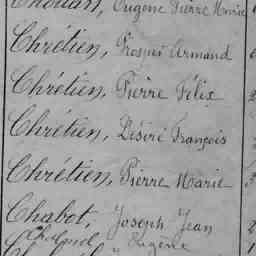 Chouan, Eugène Pierre Marie
Chrétien, Prosper Armand
Chrétien, Pierre Félix
Chrétien, Désiré François
Chrétien, Pierre Marie
Chabot, Joseph Jean
Eugène